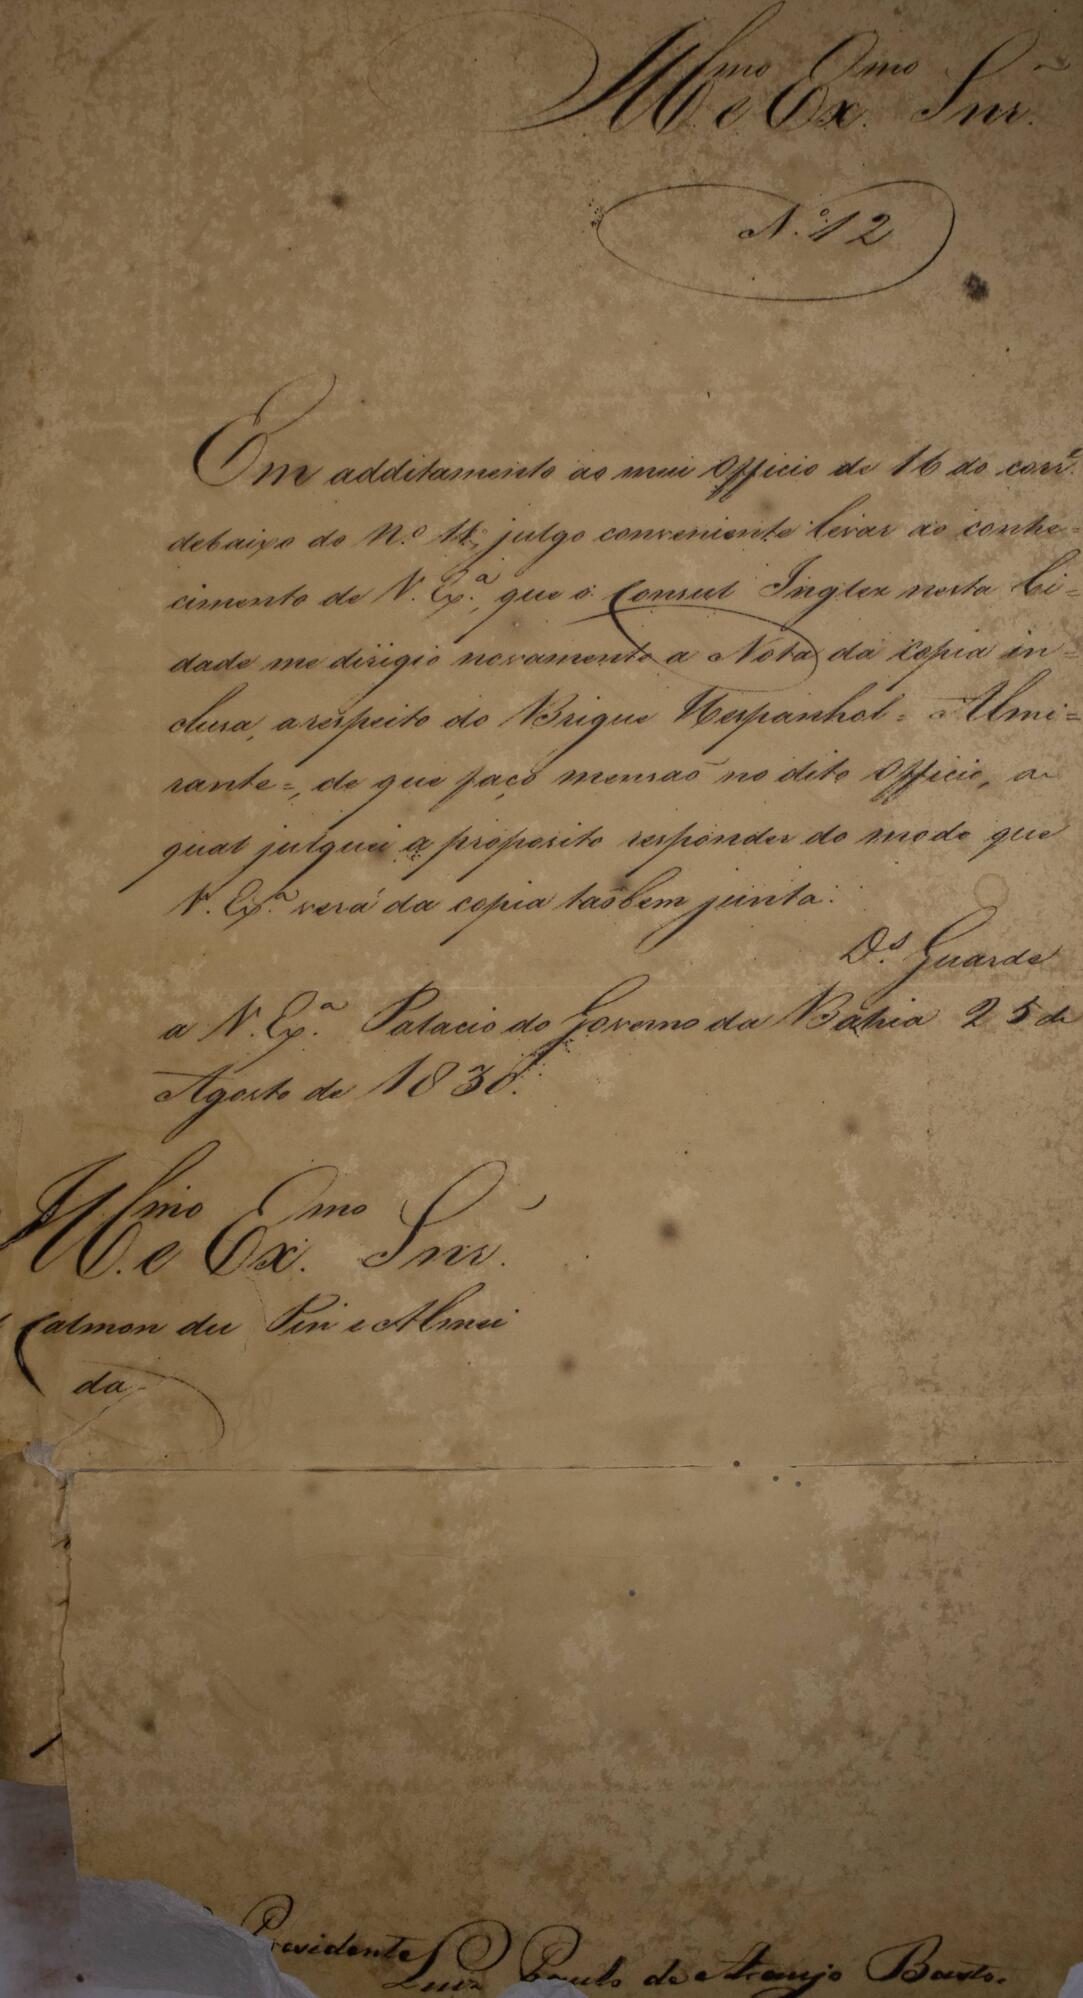 Illmo e Exmo Snr.
N.º 12
Em additamento ao meu Officio de 16 do corre.
debaixo do N.º 11, julgo conveniente levar ao conhe=
cimento de V. Ex.ª, que o Consul Inglez nesta Ci=
dade me dirigio novamente a Nota da copia in=
clusa, a respeito do Brigue Hespanhol = Almi=
rante =, de que faço mensaõ no dito Officio, a
qual julguei a proposito responder do modo que
V. Ex.ª verá da copia taõbem junta.
D.s Guarde
a V. Ex.ª Palacio do Governo da Bahia 25 de
Agosto de 1830.
Illmo e Exmo Snr.
Calmon du Pin e Almei
da
Presidente
Luiz Paulo de Araujo Basto.